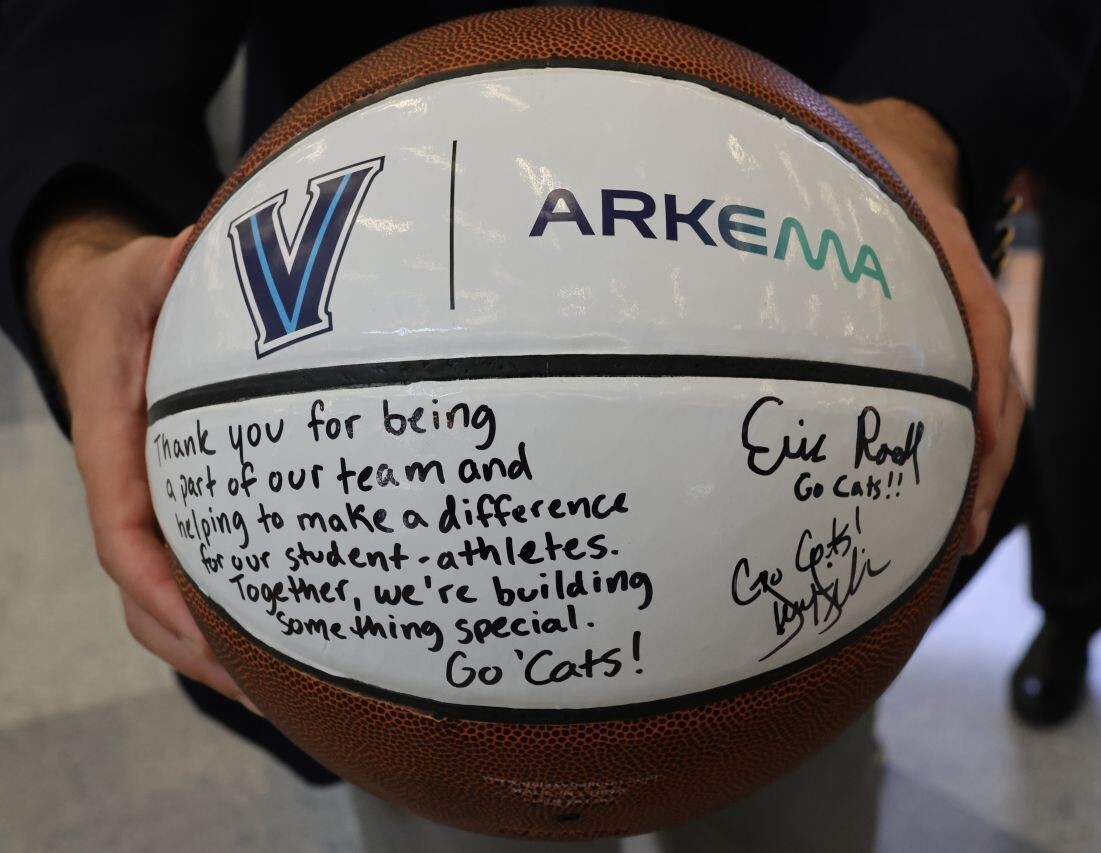 V ARKEMA
Thank you for being
a part of our team and
helping to make a difference
for our student-athletes.
Together, we're building
something special.
Go 'Cats!
Eric
Go Cats!!
Go Cats!